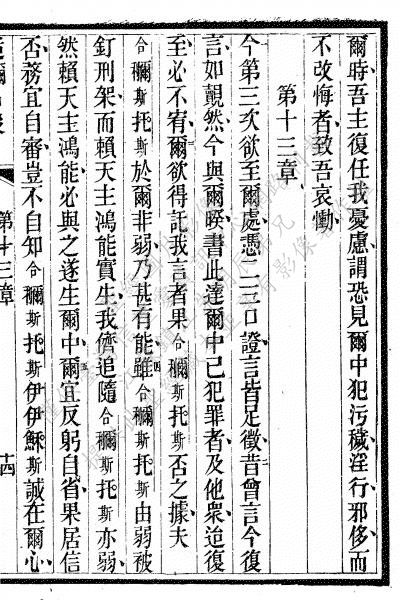 爾時吾主復任我憂慮謂恐見爾中犯污穢淫行邪侈而
不改悔者致吾哀慟
第十三章
今第三次欲至爾處憑二三口證言皆足徵昔曾言今復
言如覿然今與爾暌書此達爾中已犯罪者及他衆迨復
至必不宥爾欲得記我言者果合彌斯托斯否之據夫
合彌斯托斯於爾非弱乃甚有能雖合彌斯托斯由弱被
釘刑架而賴天主鴻能實生我儕追隨合彌斯托斯亦弱
然賴天主鴻能必與之遂生爾中爾宜反躬自省果居信
否務宜自審豈不自知合彌斯托斯伊伊穌斯誠在爾心
第十三章
十四